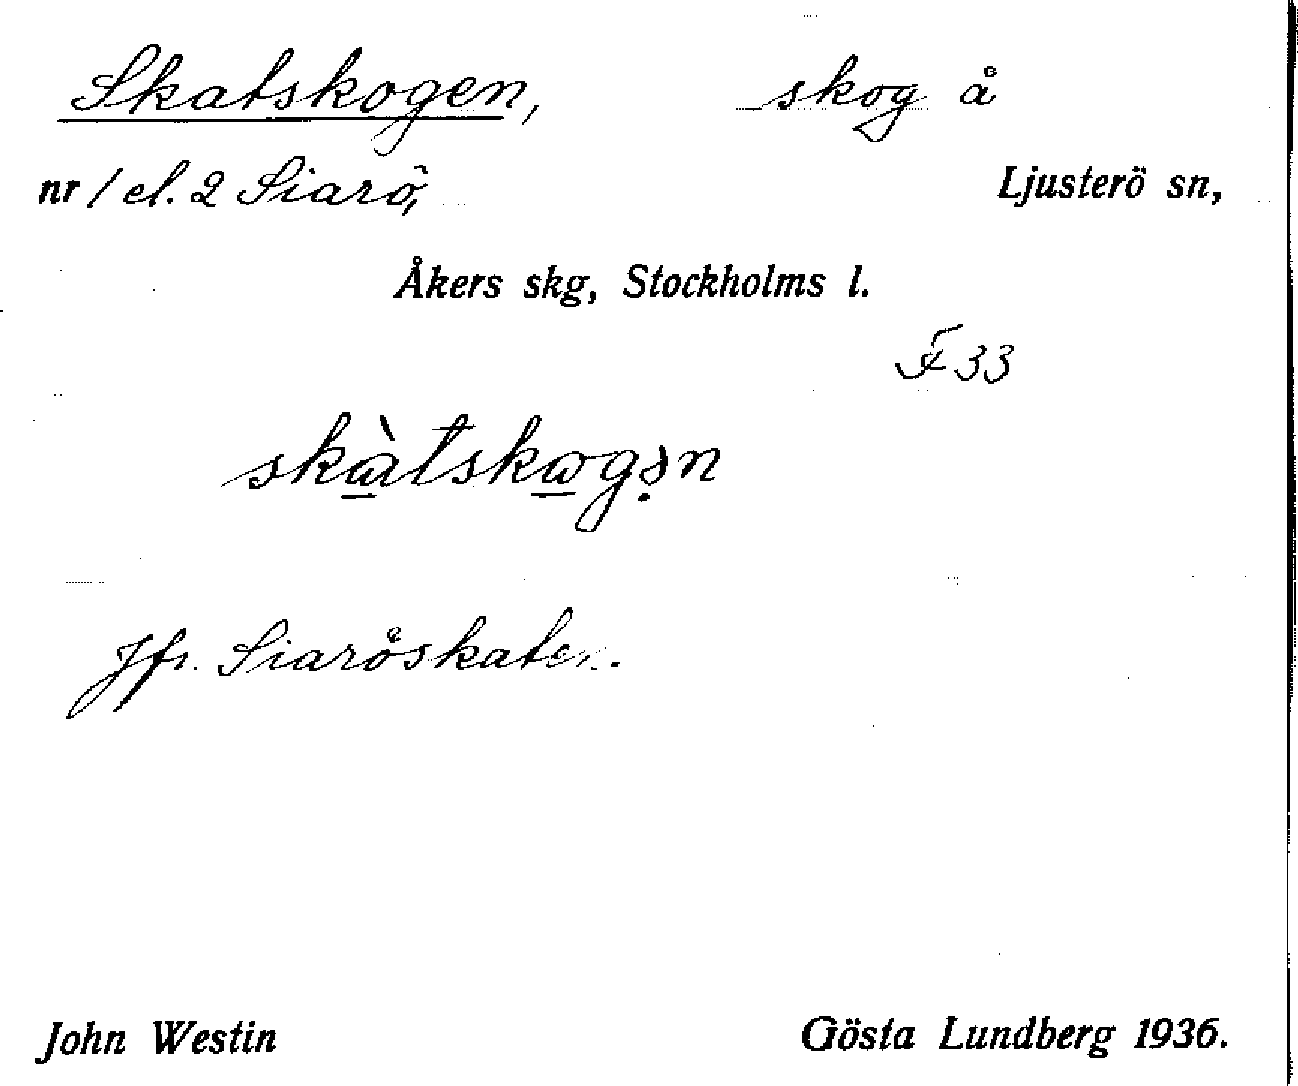 Skatskogen, skog å
nr 1 el. 2 Siarö, Ljusterö sn,
Åkers skg, Stockholms l.
F 33
Jfr. Siaröskaten.
John Westin Gösta Lundberg 1936.